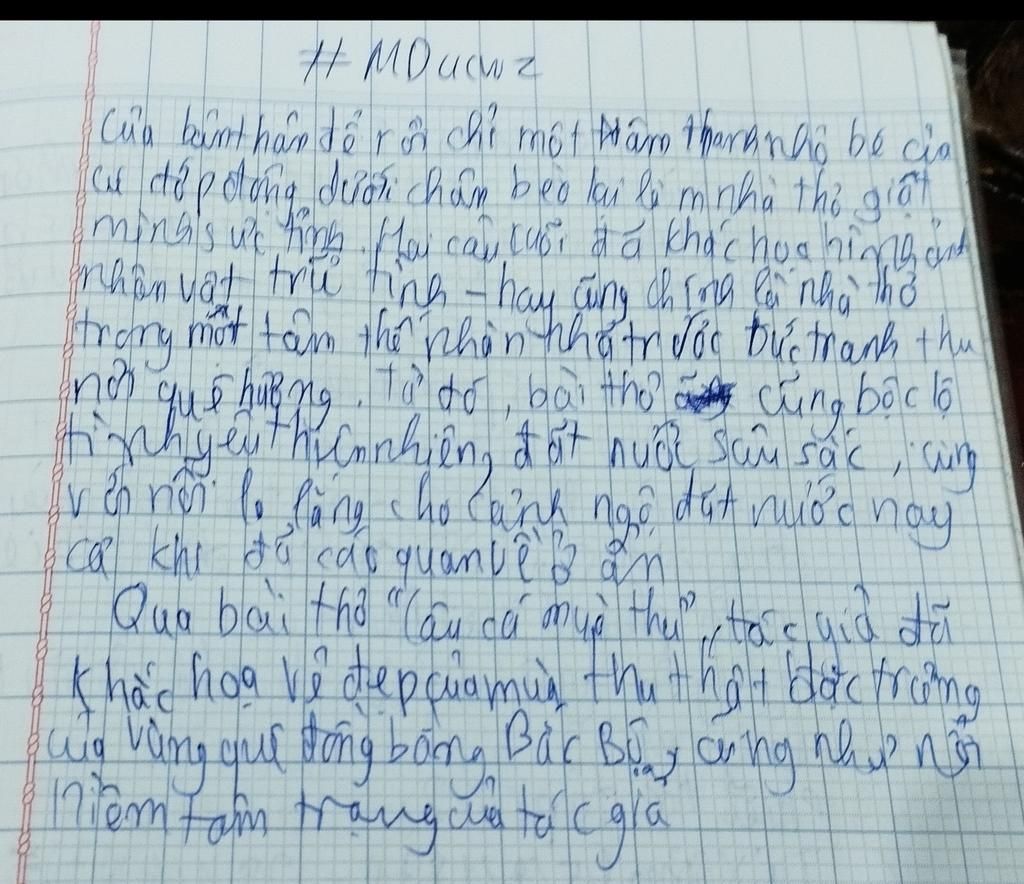 #MDucwz
của bản thân để rồi chỉ một thanh nhỏ bé của
cá đớp động dưới chân bèo lại làm nhà thơ giật
mình sực tỉnh. Hai câu cuối đã khắc họa hình ảnh
nhân vật trữ tình - hay cũng chính là nhà thơ
trong một tâm thế nhàn nhã trước bức tranh thu
nơi quê hương. Từ đó, bài thơ cũng bộc lộ
tình yêu thiên nhiên, đất nước sâu sắc, cùng
với nỗi lo lắng cho cảnh ngộ đất nước ngay
cả khi đã cáo quan về ở ẩn
Qua bài thơ "Câu cá mùa thu", tác giả đã
khắc họa vẻ đẹp của mùa thu thật đặc trưng
của vùng quê đồng bằng Bắc Bộ, cũng như nỗi
niềm tâm trạng của tác giả